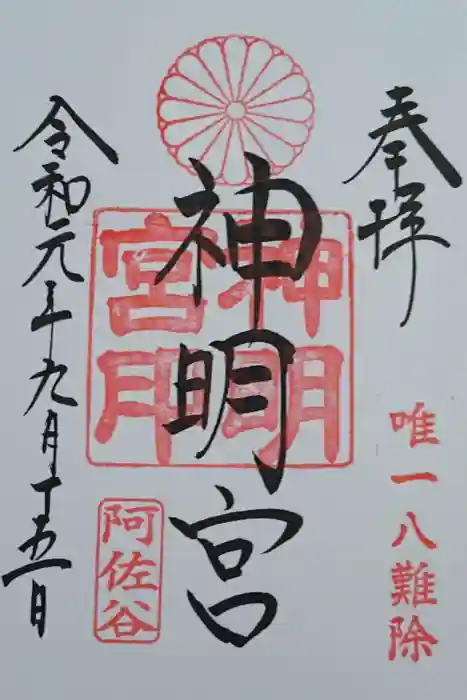 奉拝
唯一八難除
神明宮
神明宮
阿佐谷
令和元年九月十五日